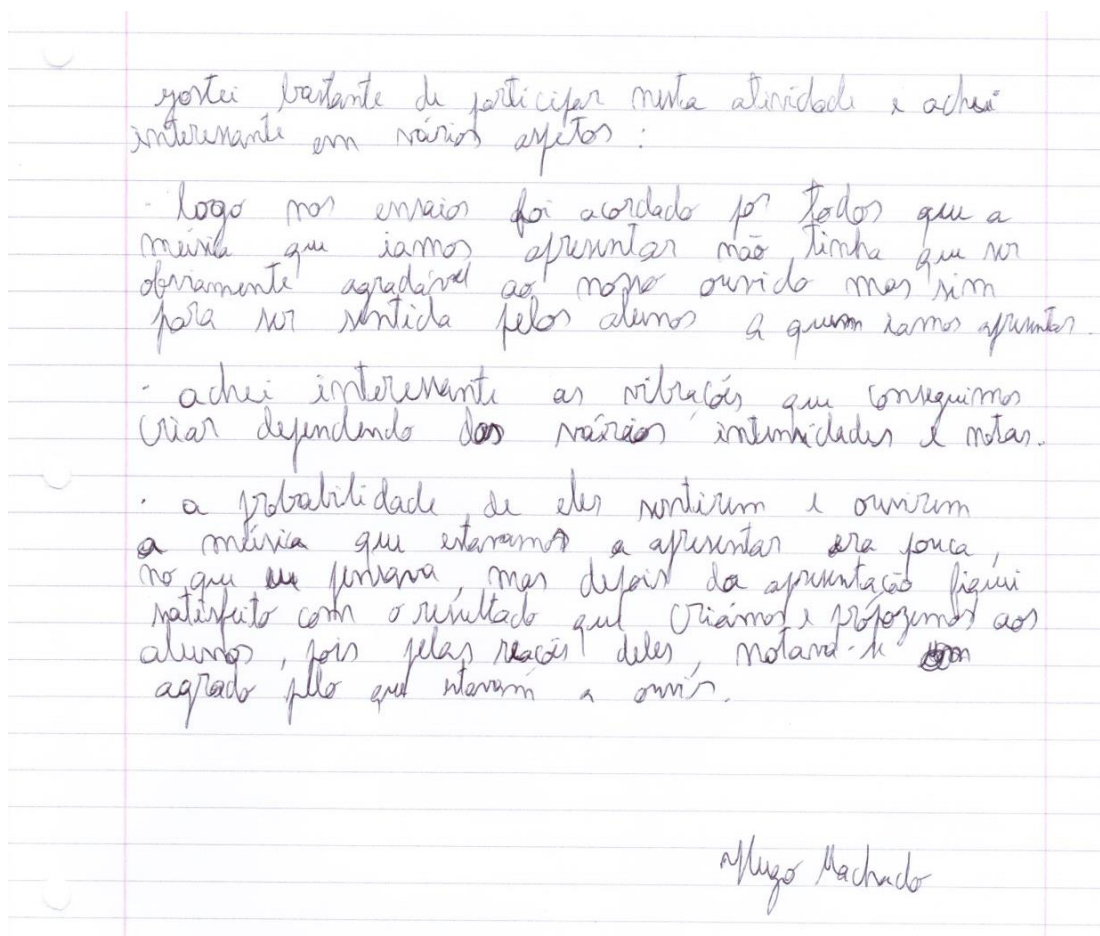 gostei bastante de participar nesta atividade e achei
interessante em vários aspetos :
- logo nos ensaios foi acordado por todos que a
música que iamos apresentar não tinha que ser
obviamente agradável ao nosso ouvido mas sim
para ser sentida pelos alunos a quem iamos apresentar.
- achei interessante as vibrações que conseguimos
criar dependendo das várias intensidades e notas.
· a probabilidade de eles sentirem e ouvirem
a música que estavamos a apresentar era pouca,
no que eu pensava, mas depois da apresentação fiquei
satisfeito com o resultado que criámos e propozemos aos
alunos, pois pelas reações deles, notava-se um
agrado pelo que estavam a ouvir.
Hugo Machado